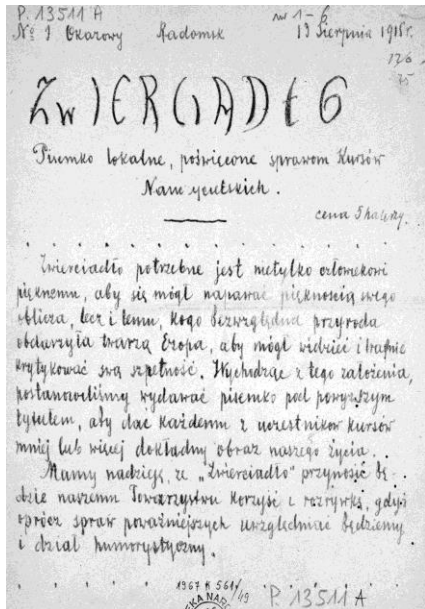 P. 13511 A
nr 1-6
№ 1 Okazowy Radomsk 13 Sierpnia 1915r.
126
75
ZWIERCIADŁO
Pisemko lokalne, poświęcone sprawom Kursów
Nauczycielskich.
cena 5 halerzy.
Zwierciadło potrzebne jest nietylko człowiekowi
pięknemu, aby się mógł napawać pięknością swego
oblicza, lecz i temu, kogo bezwzględna przyroda
obdarzyła twarzą Ezopa, aby mógł widzieć i trafnie
krytykować swą szpetność. Wychodząc z tego założenia,
postanowiliśmy wydawać pisemko pod powyższym
tytułem, aby dać każdemu z uczestników kursów
mniej lub więcej dokładny obraz naszego życia.
Mamy nadzieję, że „Zwierciadło" przynosić bę-
dzie naszemu Towarzystwu korzyść i rozrywkę, gdyż
oprócz spraw poważniejszych uwzględniać będziemy
i dział humorystyczny.
1967 K 561/49
P. 13511 A